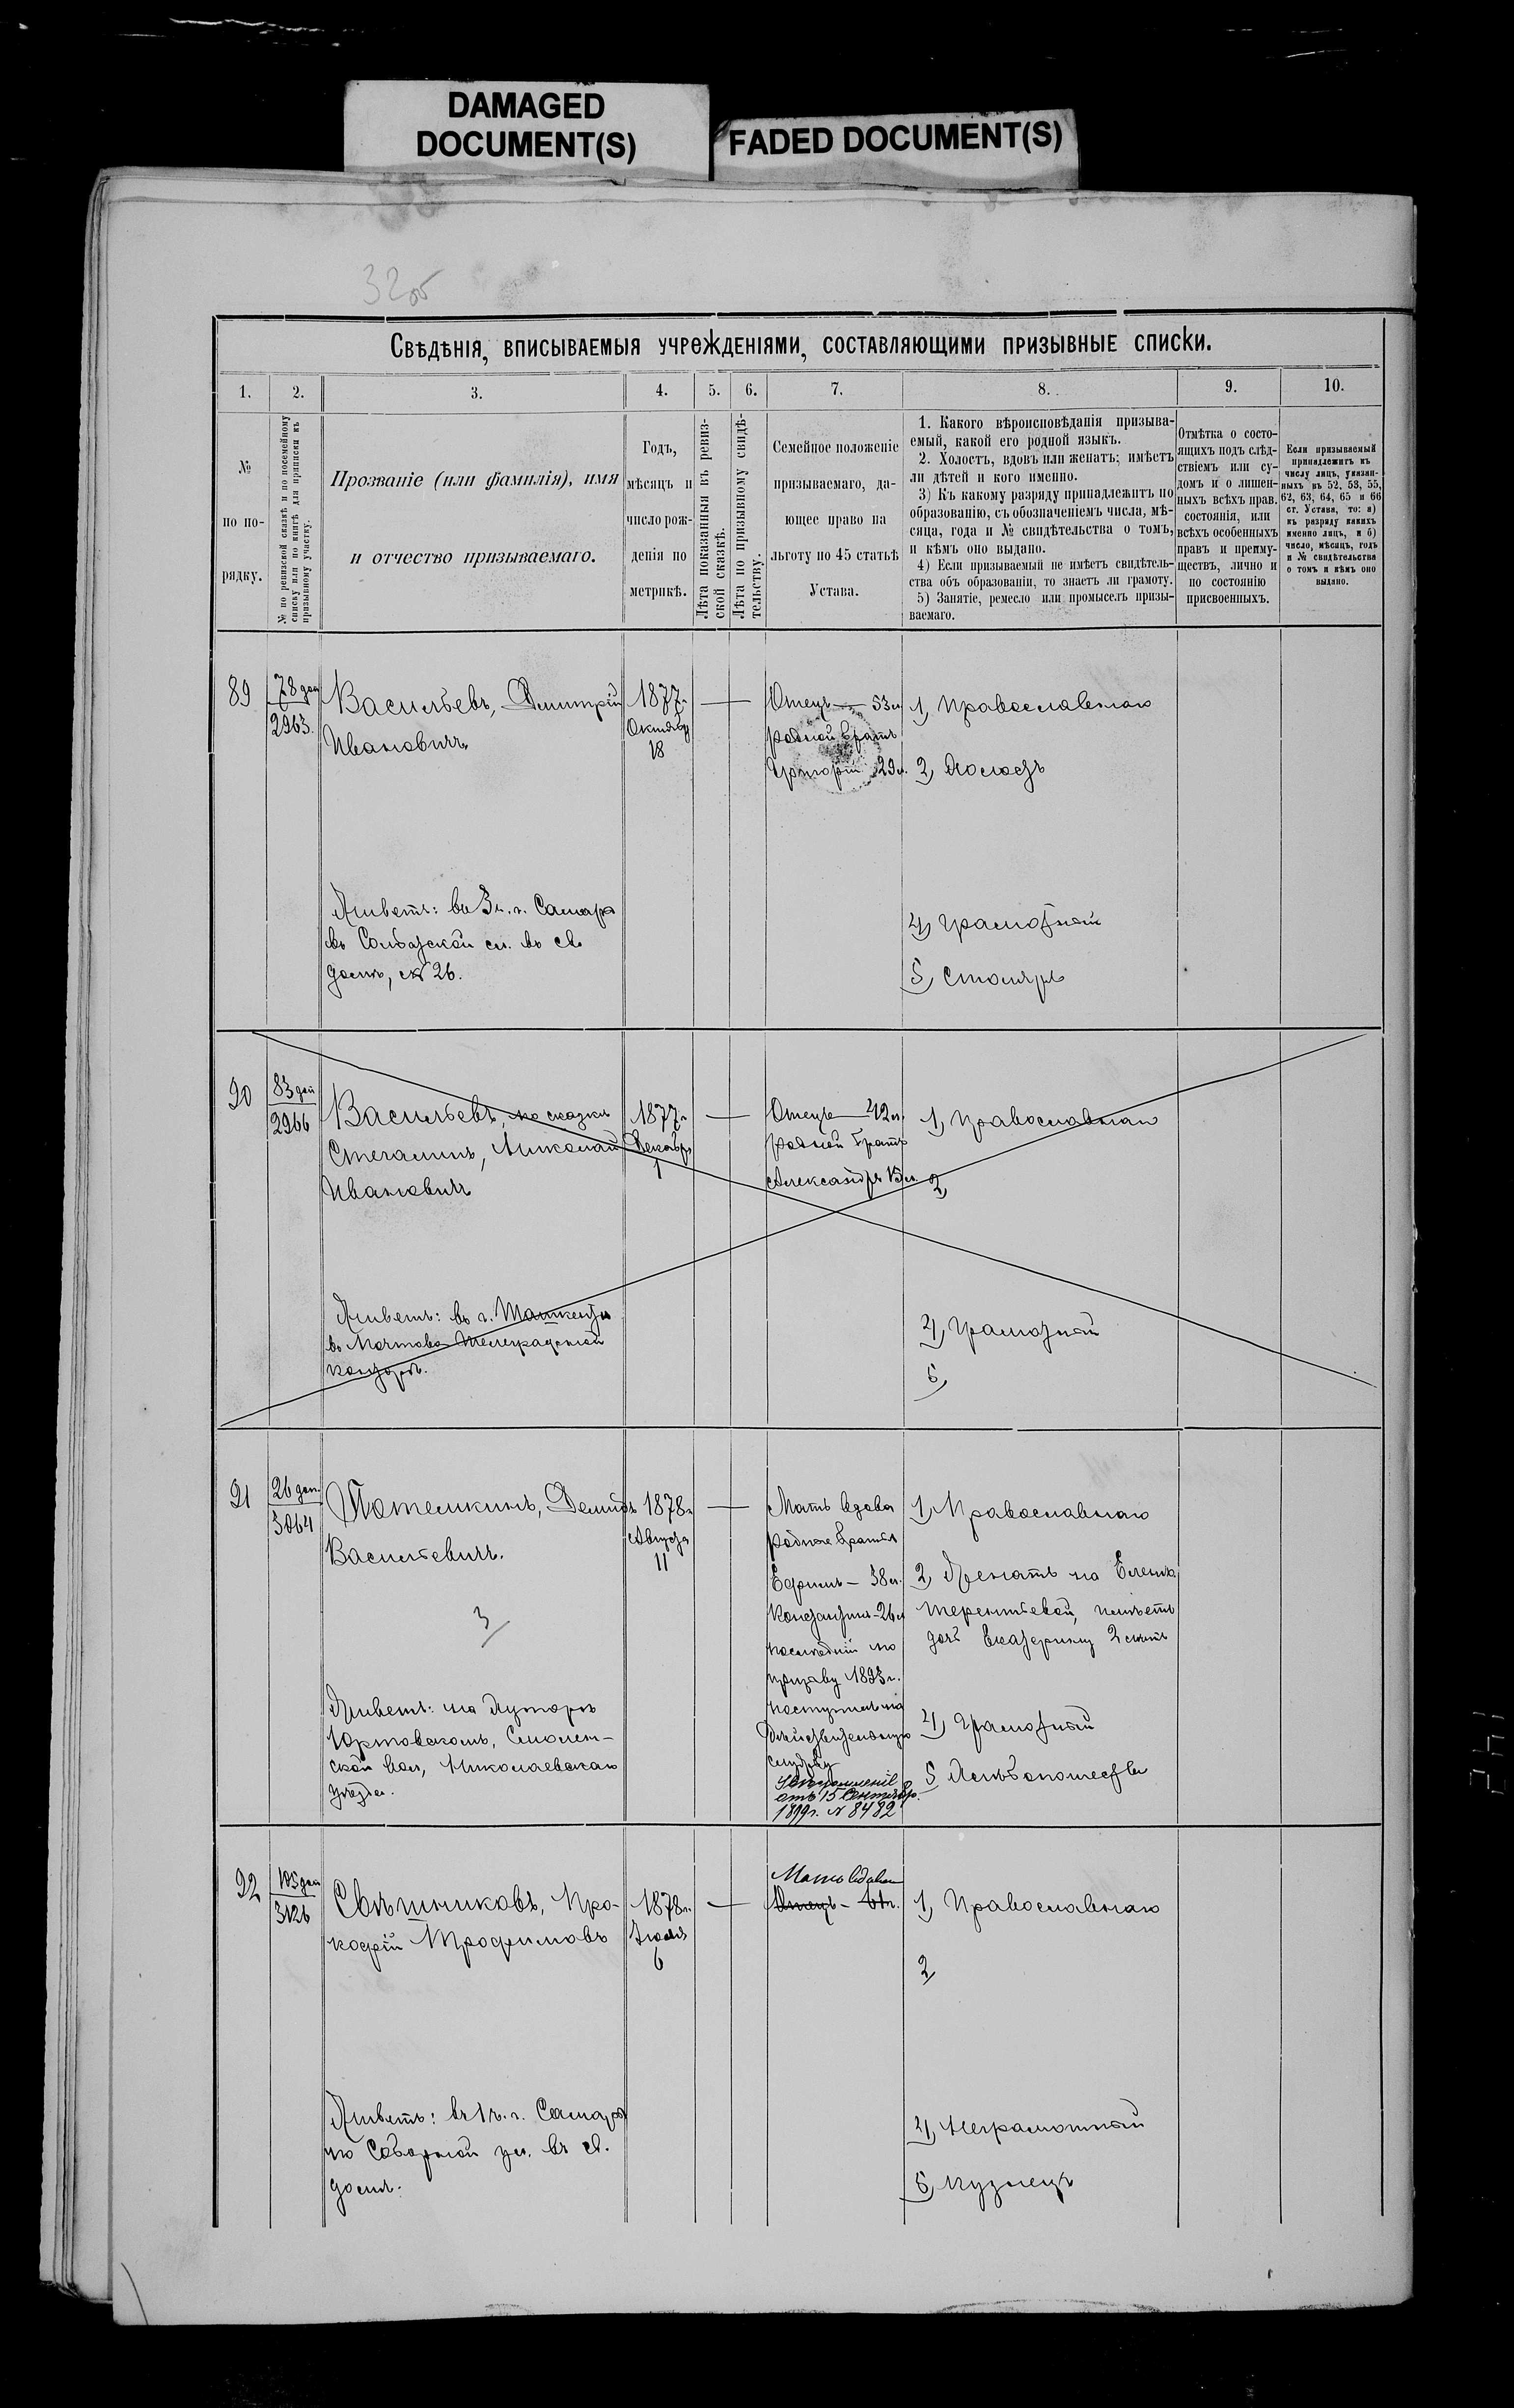 DAMAGED
DOCUMENT(S)
FADED DOCUMENT(S)
Свѣдѣнія, вписываемыя учрежденіями, составляющими призывные списки.
1. 2. 3. 4. 5. 6. 7. 8. 9. 10.
№
по по-
рядку.
№ по ревизской сказкѣ и по посемейному
списку или по книгѣ для приписки къ
призывному участку.
Прозваніе (или фамилія), имя
и отчество призываемаго.
Годъ,
мѣсяцъ и
число рож-
денія по
метрикѣ.
Лѣта показанныя въ ревиз-
ской сказкѣ.
Лѣта по призывному свидѣ-
тельству.
Семейное положеніе
призываемаго, да-
ющее право на
льготу по 45 статьѣ
Устава.
1. Какого вѣроисповѣданія призыва-
емый, какой его родной языкъ.
2. Холостъ, вдовъ или женатъ; имѣетъ
ли дѣтей и кого именно.
3) Къ какому разряду принадлежитъ по
образованію, съ обозначеніемъ числа, мѣ-
сяца, года и № свидѣтельства о томъ,
и кѣмъ оно выдано.
4) Если призываемый не имѣетъ свидѣтель-
ства объ образованіи, то знаетъ ли грамоту.
5) Занятіе, ремесло или промыселъ призы-
ваемаго.
Отмѣтка о состо-
ящихъ подъ слѣд-
ствіемъ или су-
домъ и о лишен-
ныхъ всѣхъ прав.
состоянія, или
всѣхъ особенныхъ
правъ и преиму-
ществъ, лично и
по состоянію
присвоенныхъ.
Если призываемый
принадлежитъ къ
числу лицъ, указан-
ныхъ въ 52, 53, 55,
62, 63, 64, 65 и 66
ст. Устава, то: а)
къ разряду какихъ
именно лицъ, и б)
число, мѣсяцъ, годъ
и № свидѣтельства
о томъ и кѣмъ оно
выдано.
89
78 доп
2963.
Васильевъ, Димитрій
Ивановичъ
1877 г.
Октября
18
Отецъ — 53 л
родной братъ
Григорій 29 л.
1, Православнаго
2, Холостъ
Живетъ: въ 3 ч. г. Самары
въ см. въ св.
домѣ, № 26.
4, Грамотный
5, Столяръ
90
83 доп
2966
Васильевъ, по сказкѣ
Николай
Ивановичъ
1877 г.
Декабря
1
Отецъ — 42 л.
родной братъ
Александръ 13 л.
1, Православнаго
2,
Живетъ: въ г. Ташкентѣ
въ Почтово-Телеграфной
конторѣ.
4, Грамотный
5,
91
26 доп.
3064
Потемкинъ, Демидъ
Васильевичъ.
3
1878 г.
Августа
11
Мать вдова
родные братья
Ефимъ — 38 л.
Константинъ — 26 л
последній по
призыву 1893 г.
поступилъ на
действительную
службу
отъ 15 Сентября
1899 г. № 8482
1, Православнаго
2, Женатъ на Еленѣ
Терентьевой, имѣетъ
дочь Екатерину 2 лѣтъ
Живетъ: на Хуторѣ
Юртовскомъ, Смолен-
ской вол., Николаевскаго
уѣзда.
4, Грамотный
5 Хлѣбопашество
92
105 доп
3126
Свѣшниковъ, Про-
кофій Трофимовъ
1878 г.
Іюля
6
Мать вдова
Отецъ — 61 г.
1, Православнаго
2
Живетъ: въ 1 ч. г. Самары
по Соборной ул. въ св.
домѣ.
4, Неграмотный
5, Кузнецъ